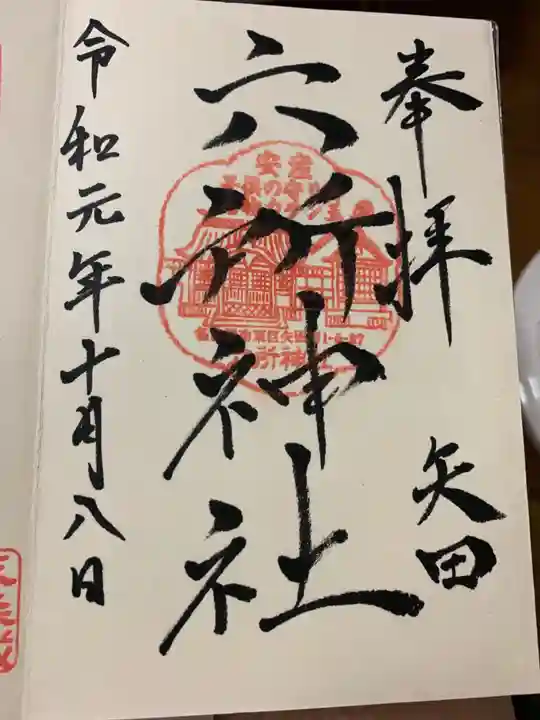 奉拝
矢田
六所神社
安産
子供の守り
東区矢田1-6-37
六所神社
令和元年十月八日